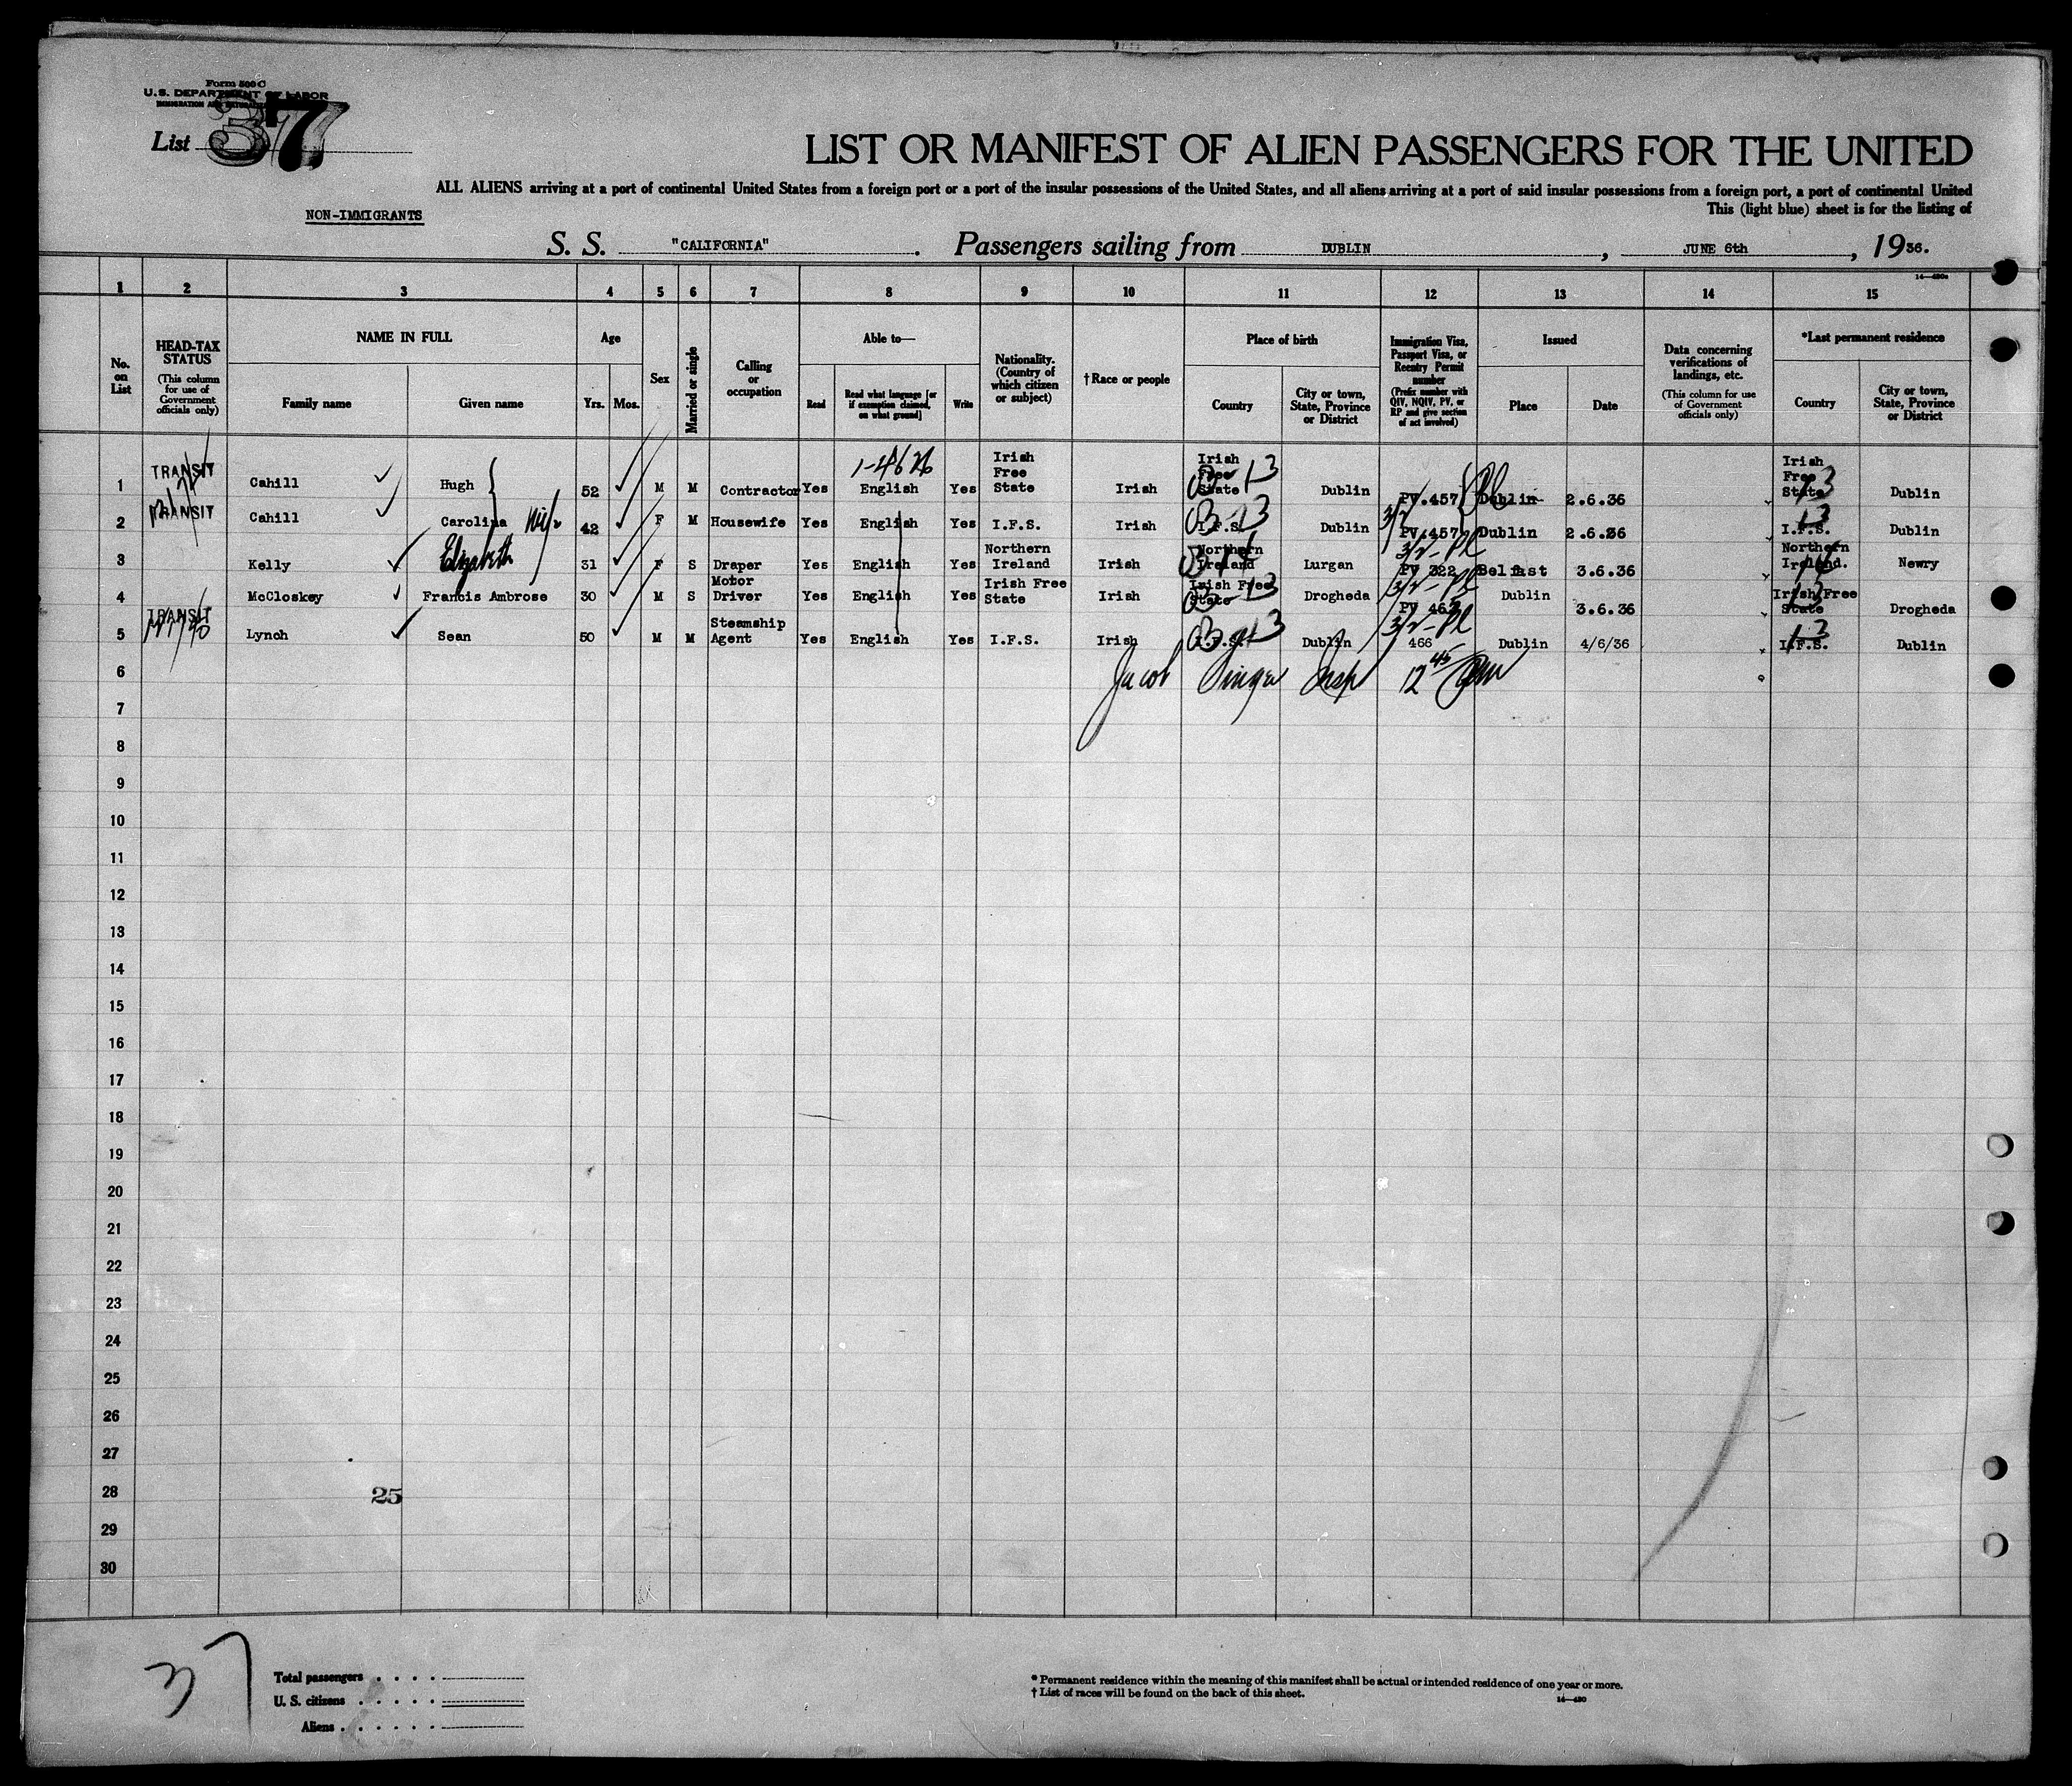 Form 500 C
U.S. DEPARTMENT OF LABOR
List 37
LIST OR MANIFEST OF ALIEN PASSENGERS FOR THE UNITED
ALL ALIENS arriving at a port of continental United States from a foreign port or a port of the insular possessions of the United States, and all aliens arriving at a port of said insular possessions from a foreign port, a port of continental United
This (light blue) sheet is for the listing of
NON-IMMIGRANTS
S. S. "CALIFORNIA". Passengers sailing from DUBLIN, JUNE 6th, 1936.
1 2 3 4 5 6 7 8 9 10 11 12 13 14 15
No. on List
HEAD-TAX STATUS
(This column for use of Government officials only)
NAME IN FULL
Family name
Given name
Age
Yrs.
Mos.
Sex
Married or single
Calling or occupation
Able to—
Read
Read what language [or if exemption claimed, on what ground]
Write
Nationality. (Country of which citizen or subject)
†Race or people
Place of birth
Country
City or town, State, Province or District
Immigration Visa, Passport Visa, or Reentry Permit number
(Prefix number with QIV, NQIV, PV, or RP and give section of act involved)
Issued
Place
Date
Data concerning verifications of landings, etc.
(This column for use of Government officials only)
*Last permanent residence
Country
City or town, State, Province or District
1 TRANSIT Cahill Hugh 52 M M Contractor Yes English Yes Irish Free State Irish Irish Free State Dublin PV.457 Dublin 2.6.36 Irish Free State Dublin
2 TRANSIT Cahill Carolina wife 42 F M Housewife Yes English Yes I.F.S. Irish I.F.S. Dublin PV.457 Dublin 2.6.36 I.F.S. Dublin
3 Kelly Elizabeth 31 F S Draper Yes English Yes Northern Ireland Irish Northern Ireland Lurgan PV 322 Belfast 3.6.36 Northern Ireland. Newry
4 McCloskey Francis Ambrose 30 M S Motor Driver Yes English Yes Irish Free State Irish Irish Free State Drogheda PV 462 Dublin 3.6.36 Irish Free State Drogheda
5 TRANSIT Lynch Sean 50 M M Steamship Agent Yes English Yes I.F.S. Irish I.F.S. Dublin 466 Dublin 4/6/36 I.F.S. Dublin
6 Jacob Singer Insp 12 45
7
8
9
10
11
12
13
14
15
16
17
18
19
20
21
22
23
24
25
26
27
28 25
29
30
37
Total passengers
U. S. citizens
Aliens
* Permanent residence within the meaning of this manifest shall be actual or intended residence of one year or more.
† List of races will be found on the back of this sheet.
14—480